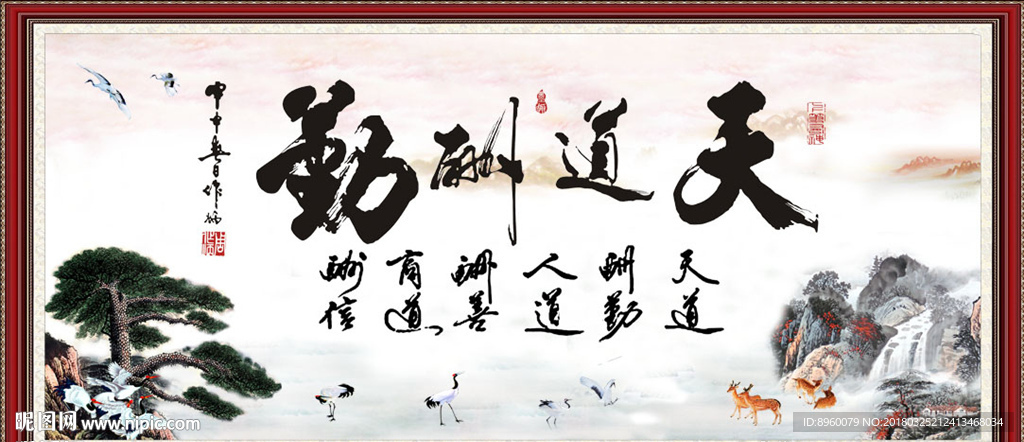 天道酬勤
天道
酬勤
人道
酬善
商道
酬信
昵图网 www.nipic.com
ID:8960079 NO:20180325212413468034